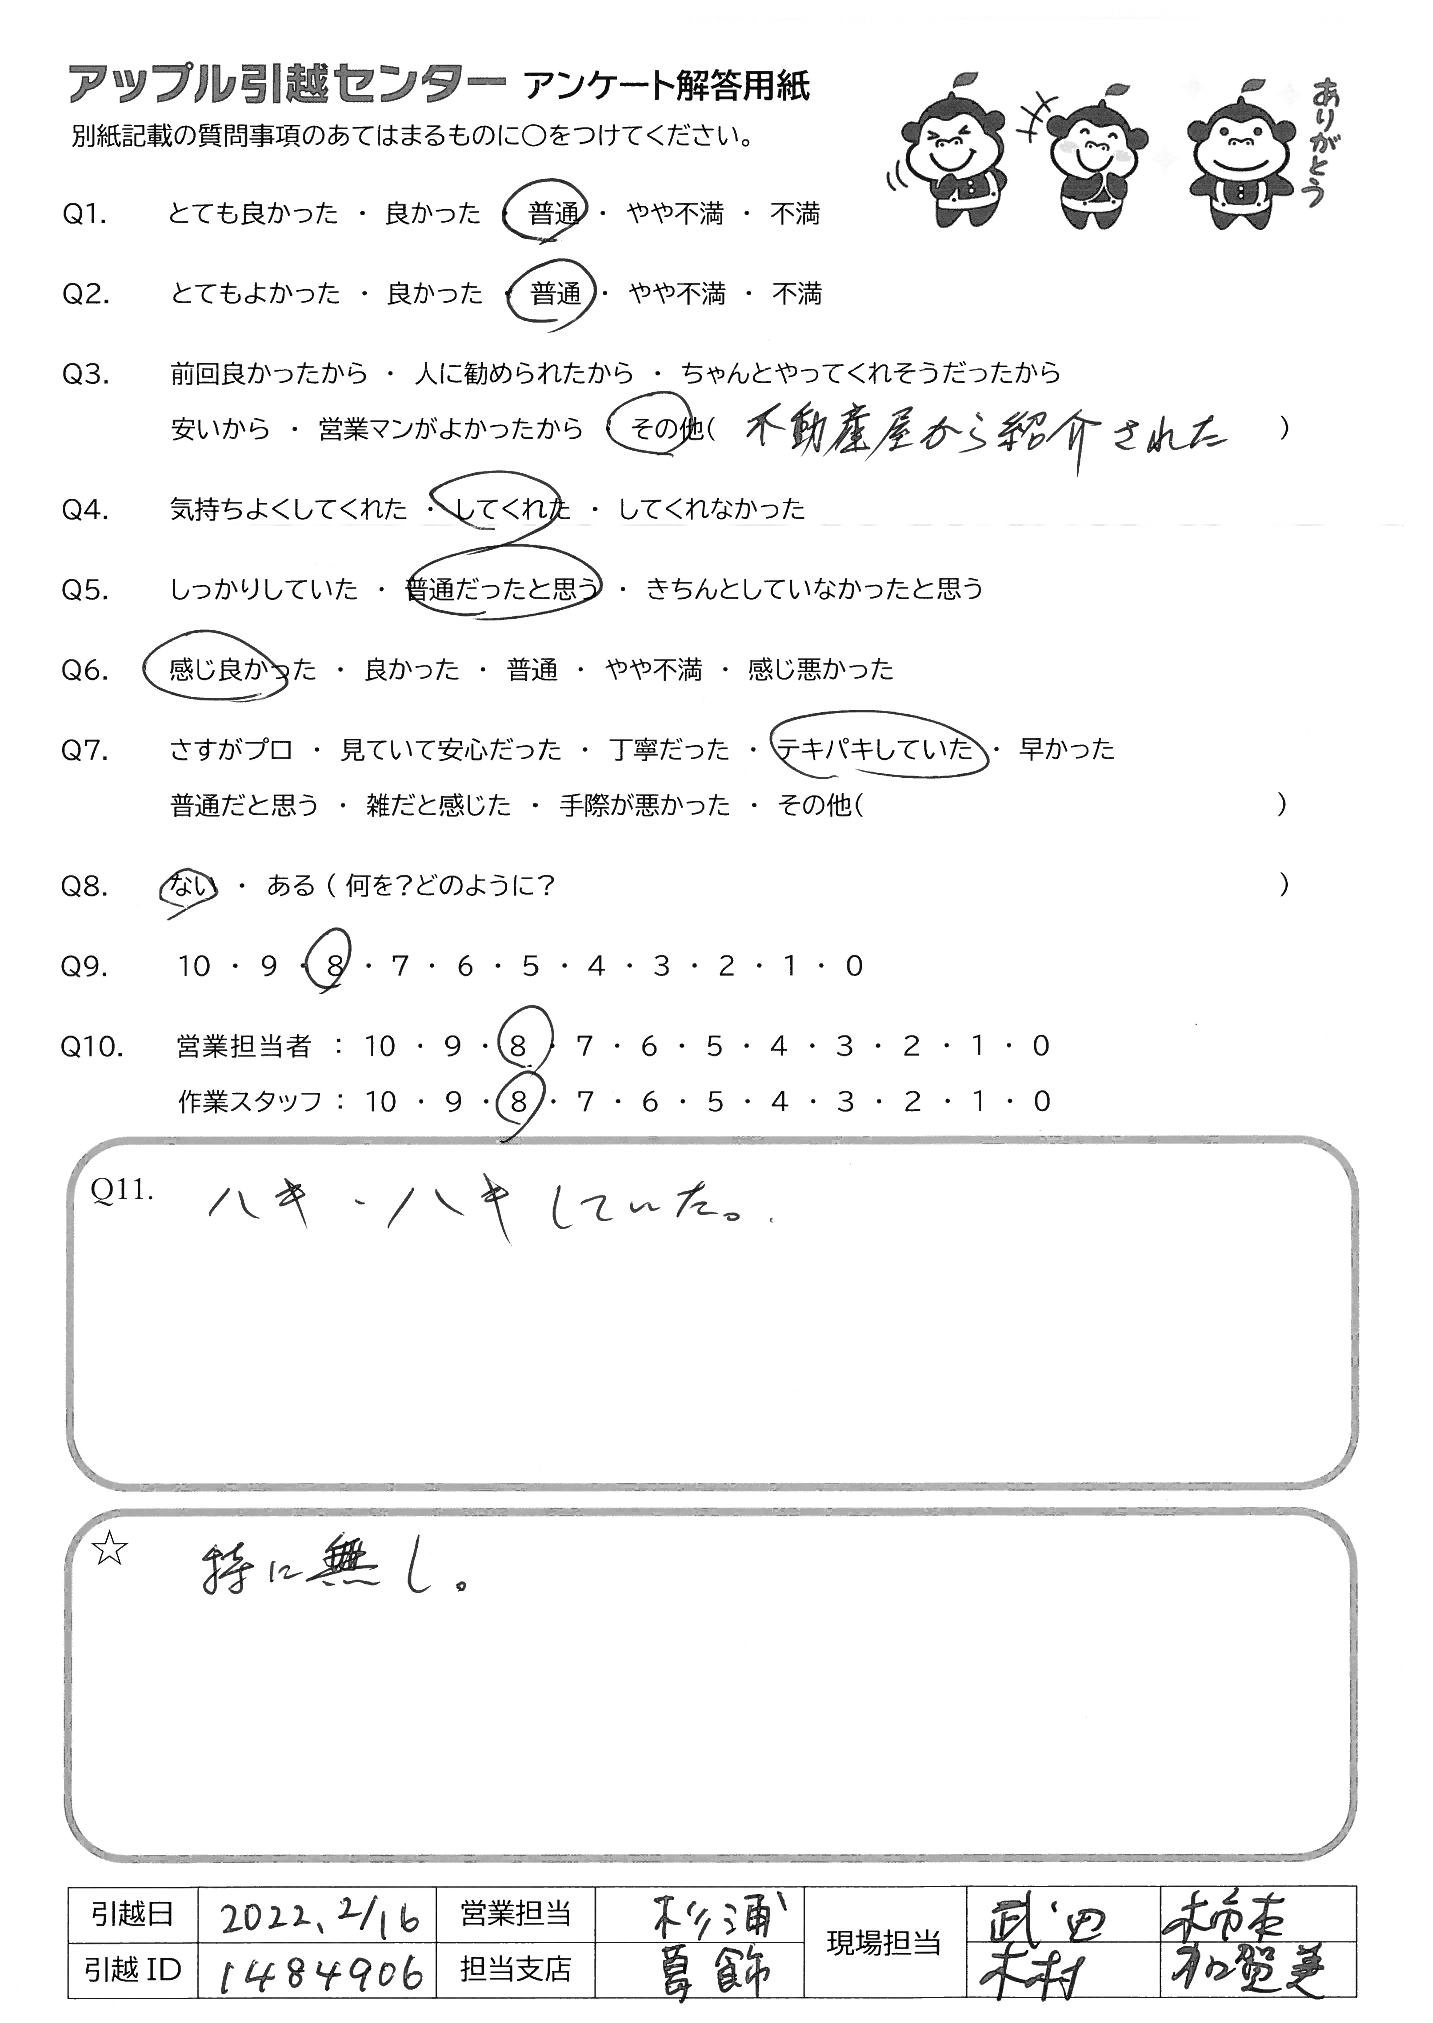 アップル引越センター アンケート解答用紙
ありがとう
別紙記載の質問事項のあてはまるものに○をつけてください。
Q1. とても良かった ・ 良かった ・ 普通 ・ やや不満 ・ 不満
Q2. とてもよかった ・ 良かった ・ 普通 ・ やや不満 ・ 不満
Q3. 前回良かったから ・ 人に勧められたから ・ ちゃんとやってくれそうだったから
安いから ・ 営業マンがよかったから ・ その他( 不動産屋から紹介された )
Q4. 気持ちよくしてくれた ・ してくれた ・ してくれなかった
Q5. しっかりしていた ・ 普通だったと思う ・ きちんとしていなかったと思う
Q6. 感じ良かった ・ 良かった ・ 普通 ・ やや不満 ・ 感じ悪かった
Q7. さすがプロ ・ 見ていて安心だった ・ 丁寧だった ・ テキパキしていた ・ 早かった
普通だと思う ・ 雑だと感じた ・ 手際が悪かった ・ その他( )
Q8. ない ・ ある ( 何を?どのように? )
Q9. 10 ・ 9 ・ 8 ・ 7 ・ 6 ・ 5 ・ 4 ・ 3 ・ 2 ・ 1 ・ 0
Q10. 営業担当者 : 10 ・ 9 ・ 8 ・ 7 ・ 6 ・ 5 ・ 4 ・ 3 ・ 2 ・ 1 ・ 0
作業スタッフ : 10 ・ 9 ・ 8 ・ 7 ・ 6 ・ 5 ・ 4 ・ 3 ・ 2 ・ 1 ・ 0
Q11. ハキ・ハキしていた。
☆ 特に無し。
引越日 2022.2/16 営業担当 杉浦 現場担当 武田 柿本
引越ID 1484906 担当支店 葛飾 木村 加賀美